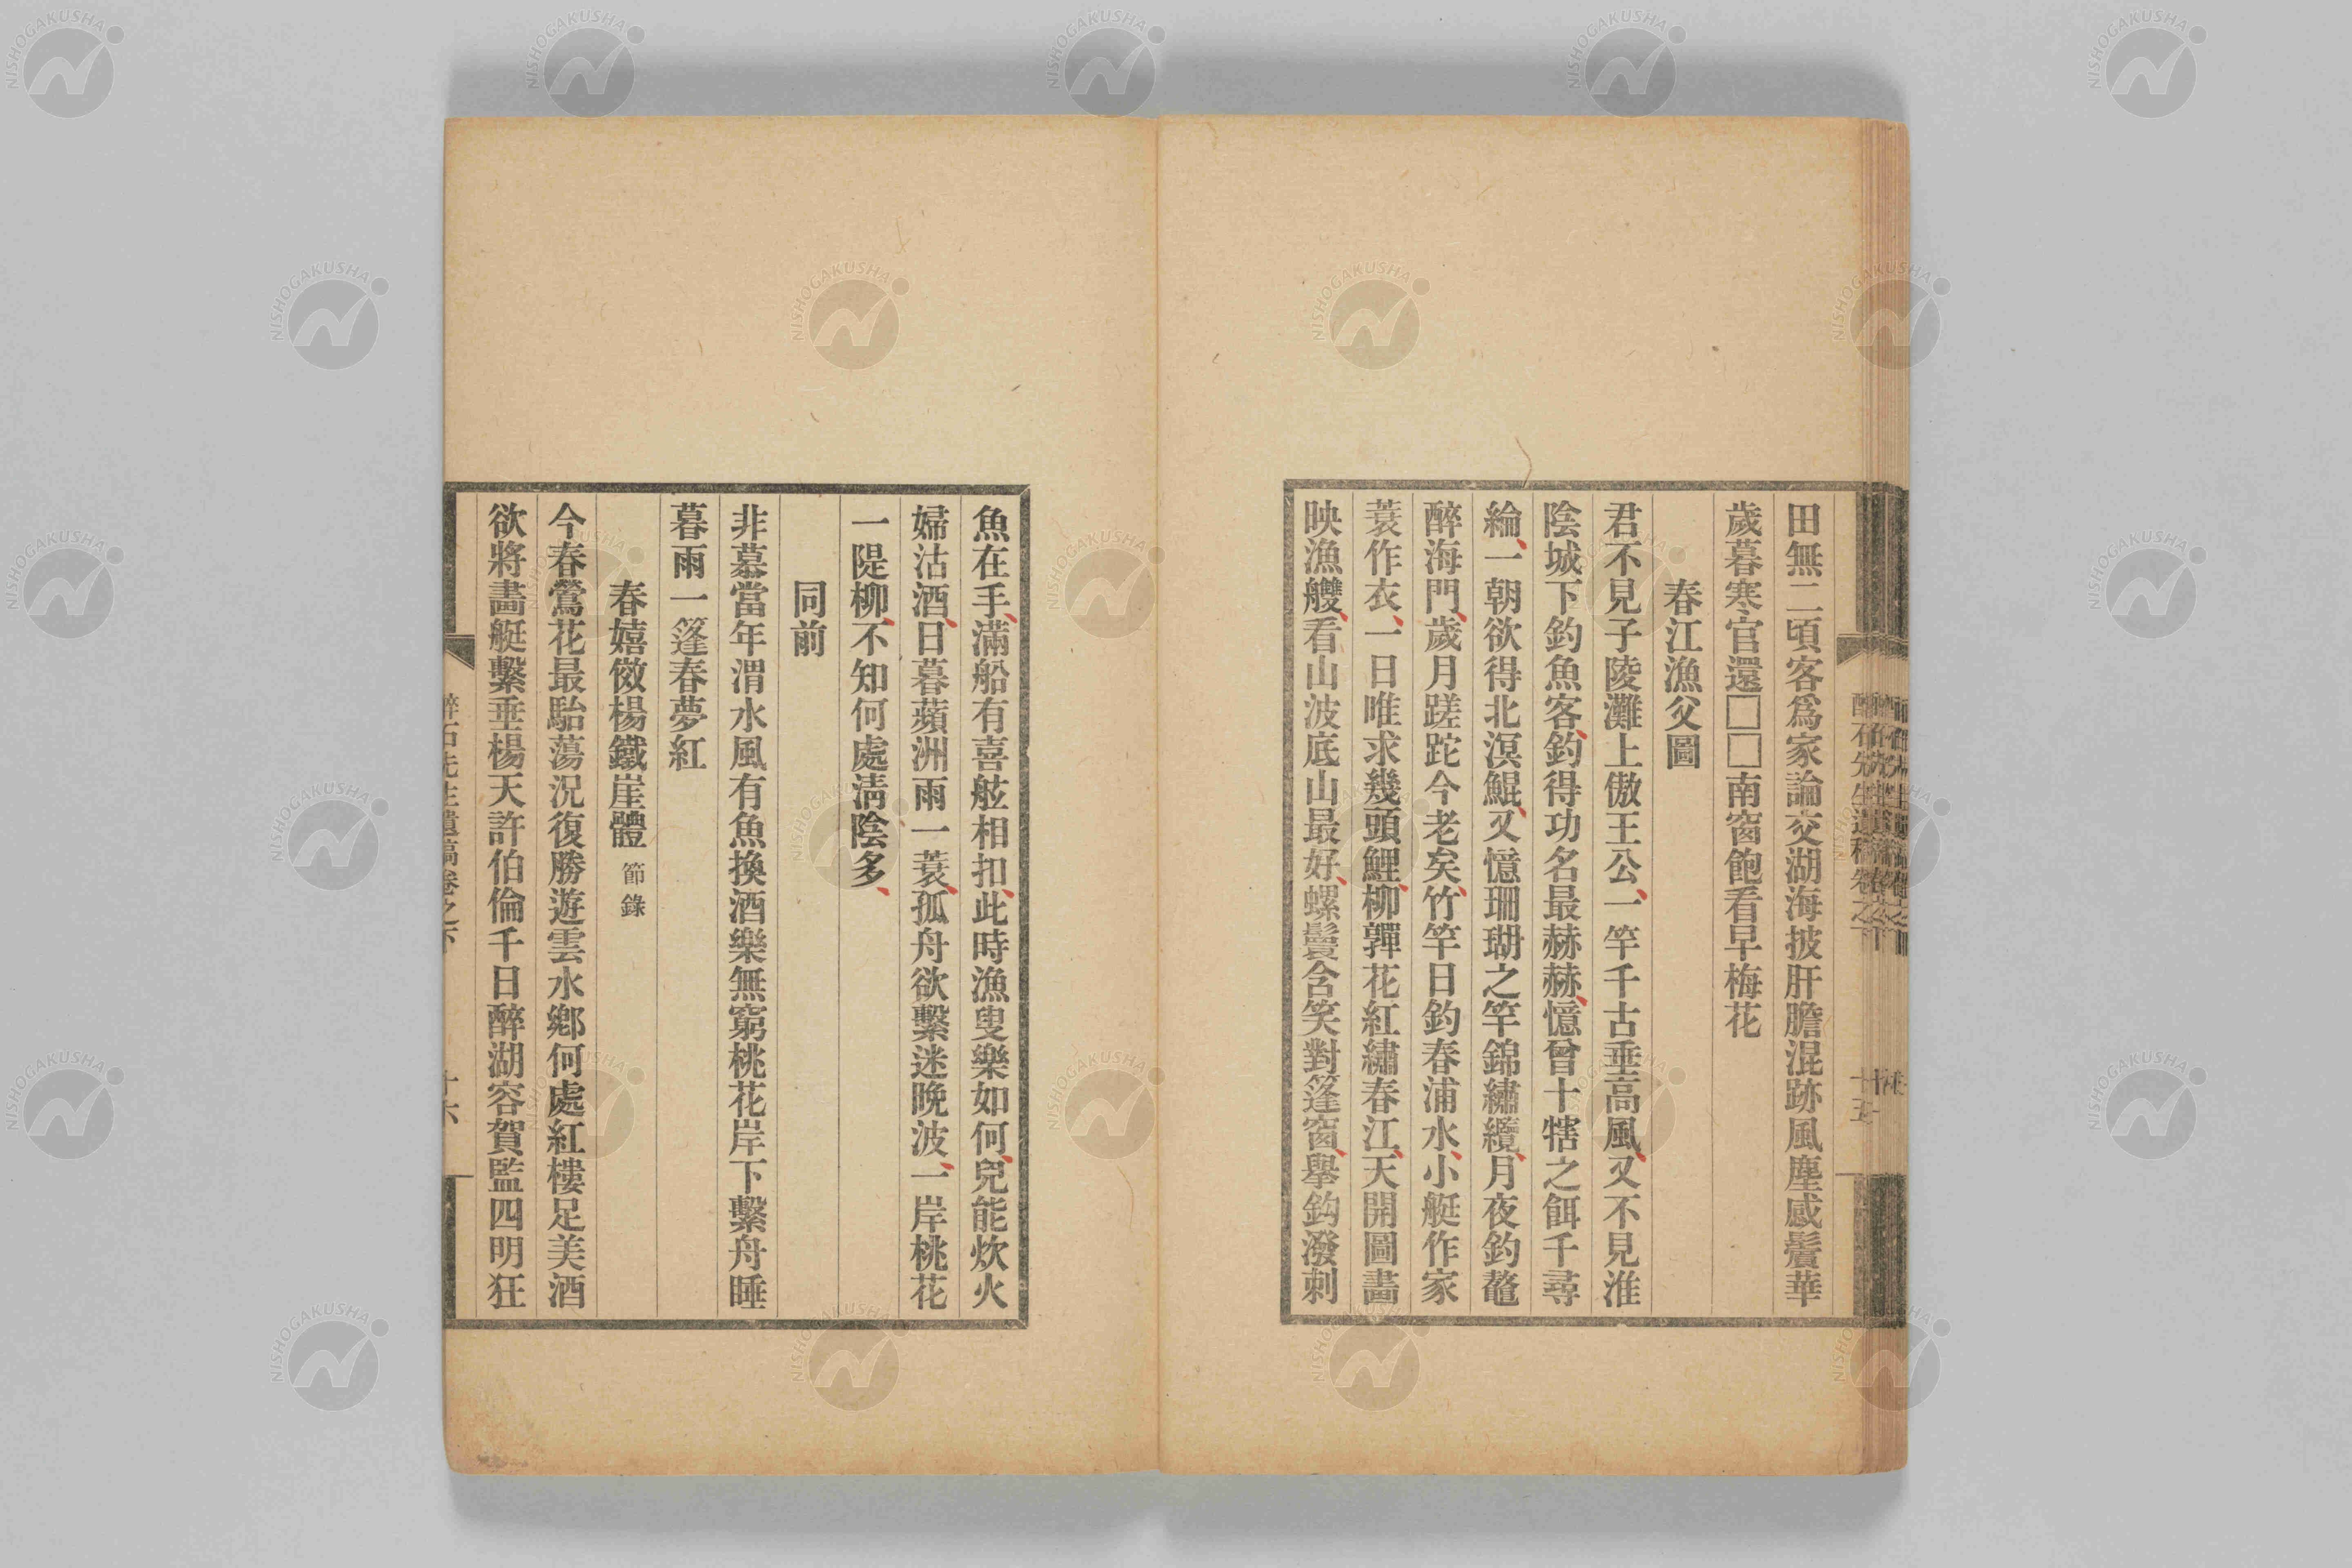 田無二頃客爲家論交湖海披肝膽混跡風塵感鬢華
歲暮寒官還□□南窗飽看早梅花
春江漁父圖
君不見子陵灘上傲王公、一竿千古垂高風、又不見淮
陰城下釣魚客、釣得功名最赫赫、憶曾十犗之餌千尋
綸、一朝欲得北溟鯤、又憶珊瑚之竿錦繡纜、月夜釣鼇
醉海門、歲月蹉跎今老矣、竹竿日釣春浦水、小艇作家
蓑作衣、一日唯求幾頭鯉、柳嚲花紅繡春江、天開圖畫
映漁艭、看山波底山最好、螺鬟含笑對篷窗、擧鈎潑刺
魚在手、滿船有喜舷相扣、此時漁叟樂如何、兒能炊火
婦沽酒、日暮蘋洲雨一蓑、孤舟欲繫迷晚波、一岸桃花
一隄柳、不知何處淸陰多、
同前
非慕當年渭水風有魚換酒樂無窮桃花岸下繫舟睡
暮雨一篷春夢紅
春嬉傚楊鐵崖體 節錄
今春鶯花最駘蕩況復勝遊雲水鄉何處紅樓足美酒
欲將畵艇繫垂楊天許伯倫千日醉湖容賀監四明狂
醉石先生遺稿卷之下 十六
NISHOGAKUSHA